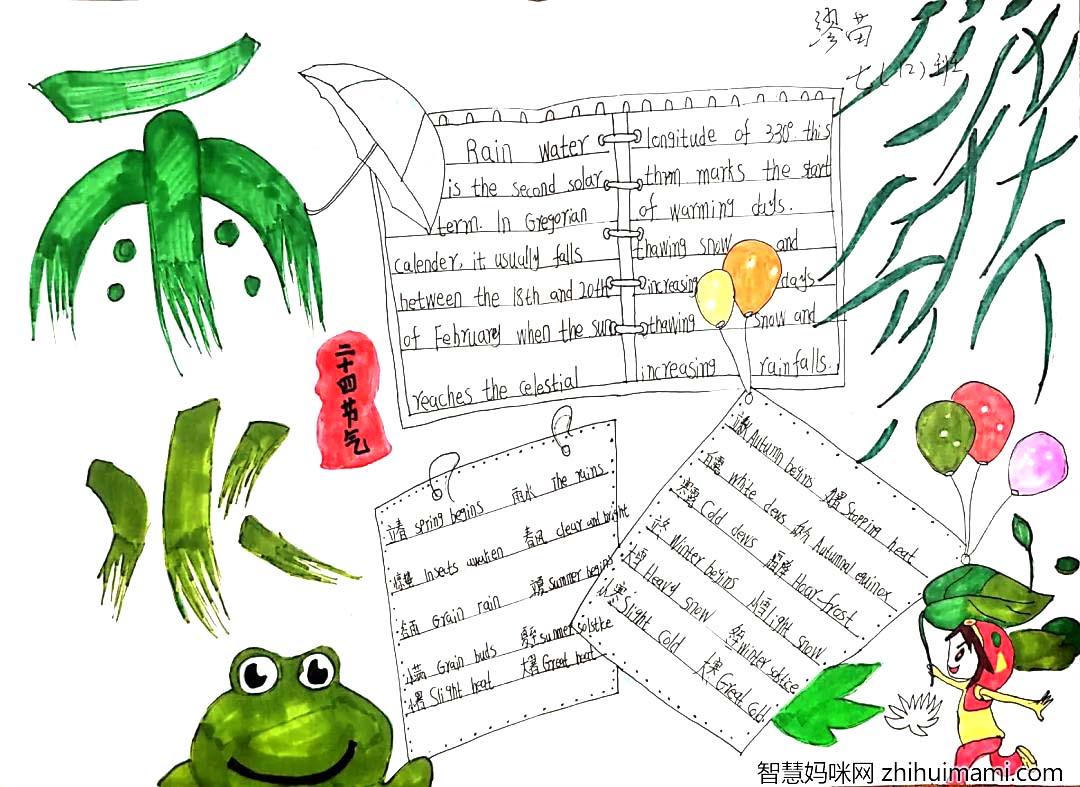 雨
水
缪苗
七(12)班
二十四节气
Rain water
is the second solar
term. In Gregorian
calender, it usually falls
between the 18th and 20th
of February when the sun
reaches the celestial
longitude of 330°. this
marks the start
of warming days.
thawing snow and
increasing days
thawing snow and
increasing rainfalls.
立春 spring begins 雨水 the rains
惊蛰 Insects awaken clear and bright
谷雨 Grain rain 立夏 summer begins
小满 Grain buds 夏至 summer solstice
小暑 Slight heat 大暑 Great heat
立秋 Autumn begins 处暑 Stopping heat
白露 white dews 秋分 Autumnal equinox
寒露 Cold dews 霜降 Hoar-frost
立冬 Winter begins 小雪 light snow
大雪 Heavy snow 冬至 winter solstice
小寒 Slight cold 大寒 Great cold
智慧妈咪网 zhihuimami.com